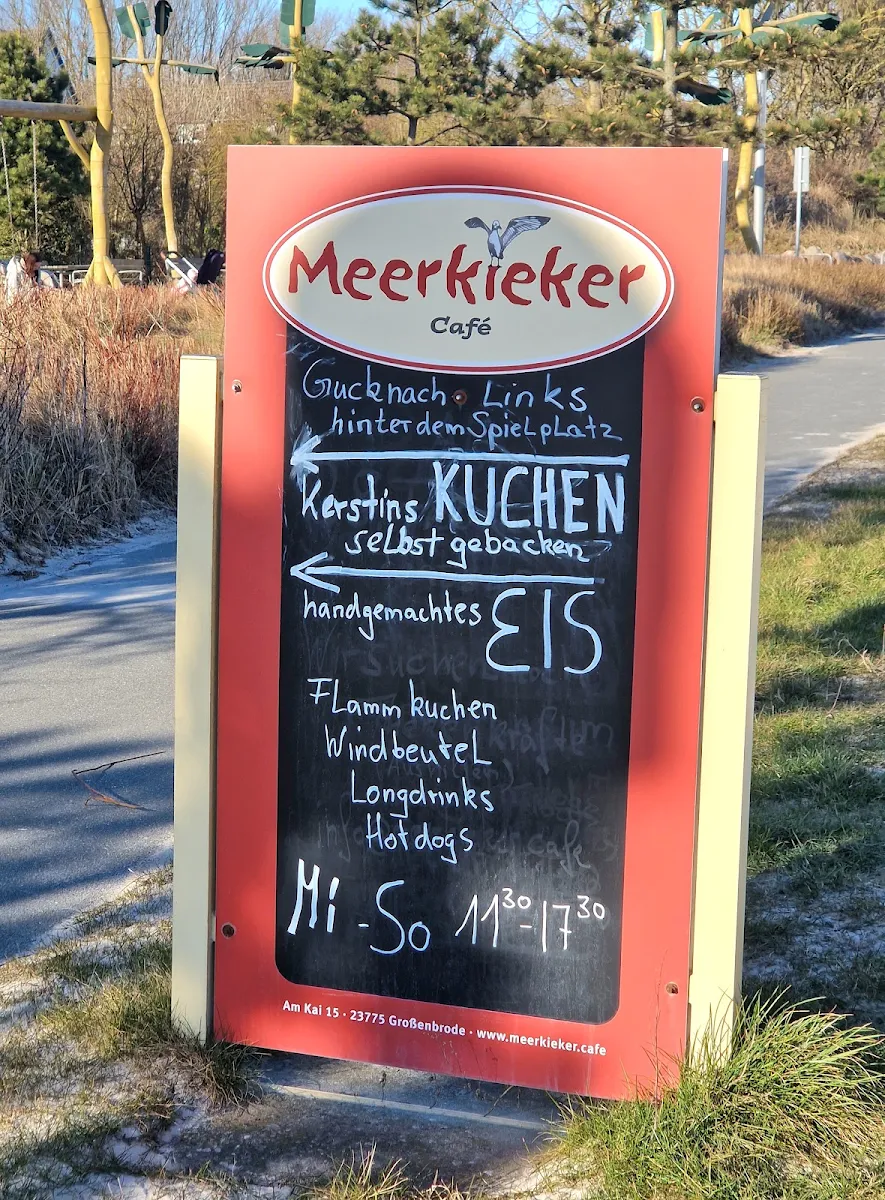 Meerkieker
Café
Gucknach Links
hinter dem Spielplatz
Kerstins KUCHEN
selbst gebacken
handgemachtes EIS
Flammkuchen
Windbeutel
Longdrinks
Hotdogs
Mi - So 11³⁰-17³⁰
Am Kai 15 · 23775 Großenbrode · www.meerkieker.cafe